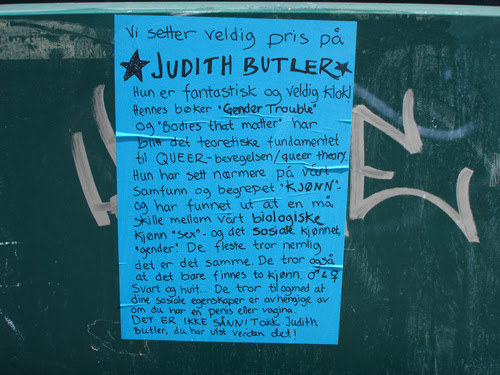 Vi setter veldig pris på
★ JUDITH BUTLER ★
Hun er fantastisk og veldig klok!
Hennes bøker "Gender Trouble"
og "Bodies that matter" har
blitt det teoretiske fundamentet
til QUEER-bevegelsen/queer theory.
Hun har sett nærmere på vårt
samfunn og begrepet "KJØNN"-
og har funnet ut at en må
skille mellom vårt biologiske
kjønn "sex"- og det sosiale kjønnet,
"gender". De fleste tror nemlig
det er det samme. De tror også
at det bare finnes to kjønn. ♂ & ♀
Svart og hvit.. De tror til og med at
dine sosiale egenskaper er avhengige av
om du har en penis eller vagina.
DET ER IKKE SÅNN! Takk Judith
Butler, du har vist verden det!